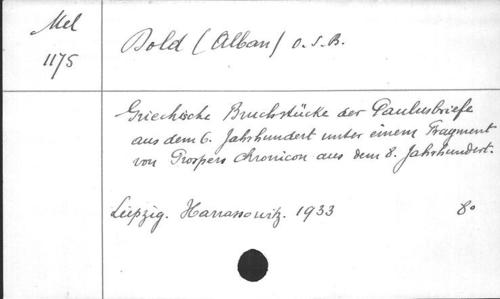 Mel
1175
Dold (Alban) O.S.B.
Griechische Bruchstücke der Paulusbriefe
aus dem 6. Jahrhundert unter einem Fragment
von Prospers Chronicon aus dem 8. Jahrhundert.
Leipzig. Harrassowitz. 1933 8º